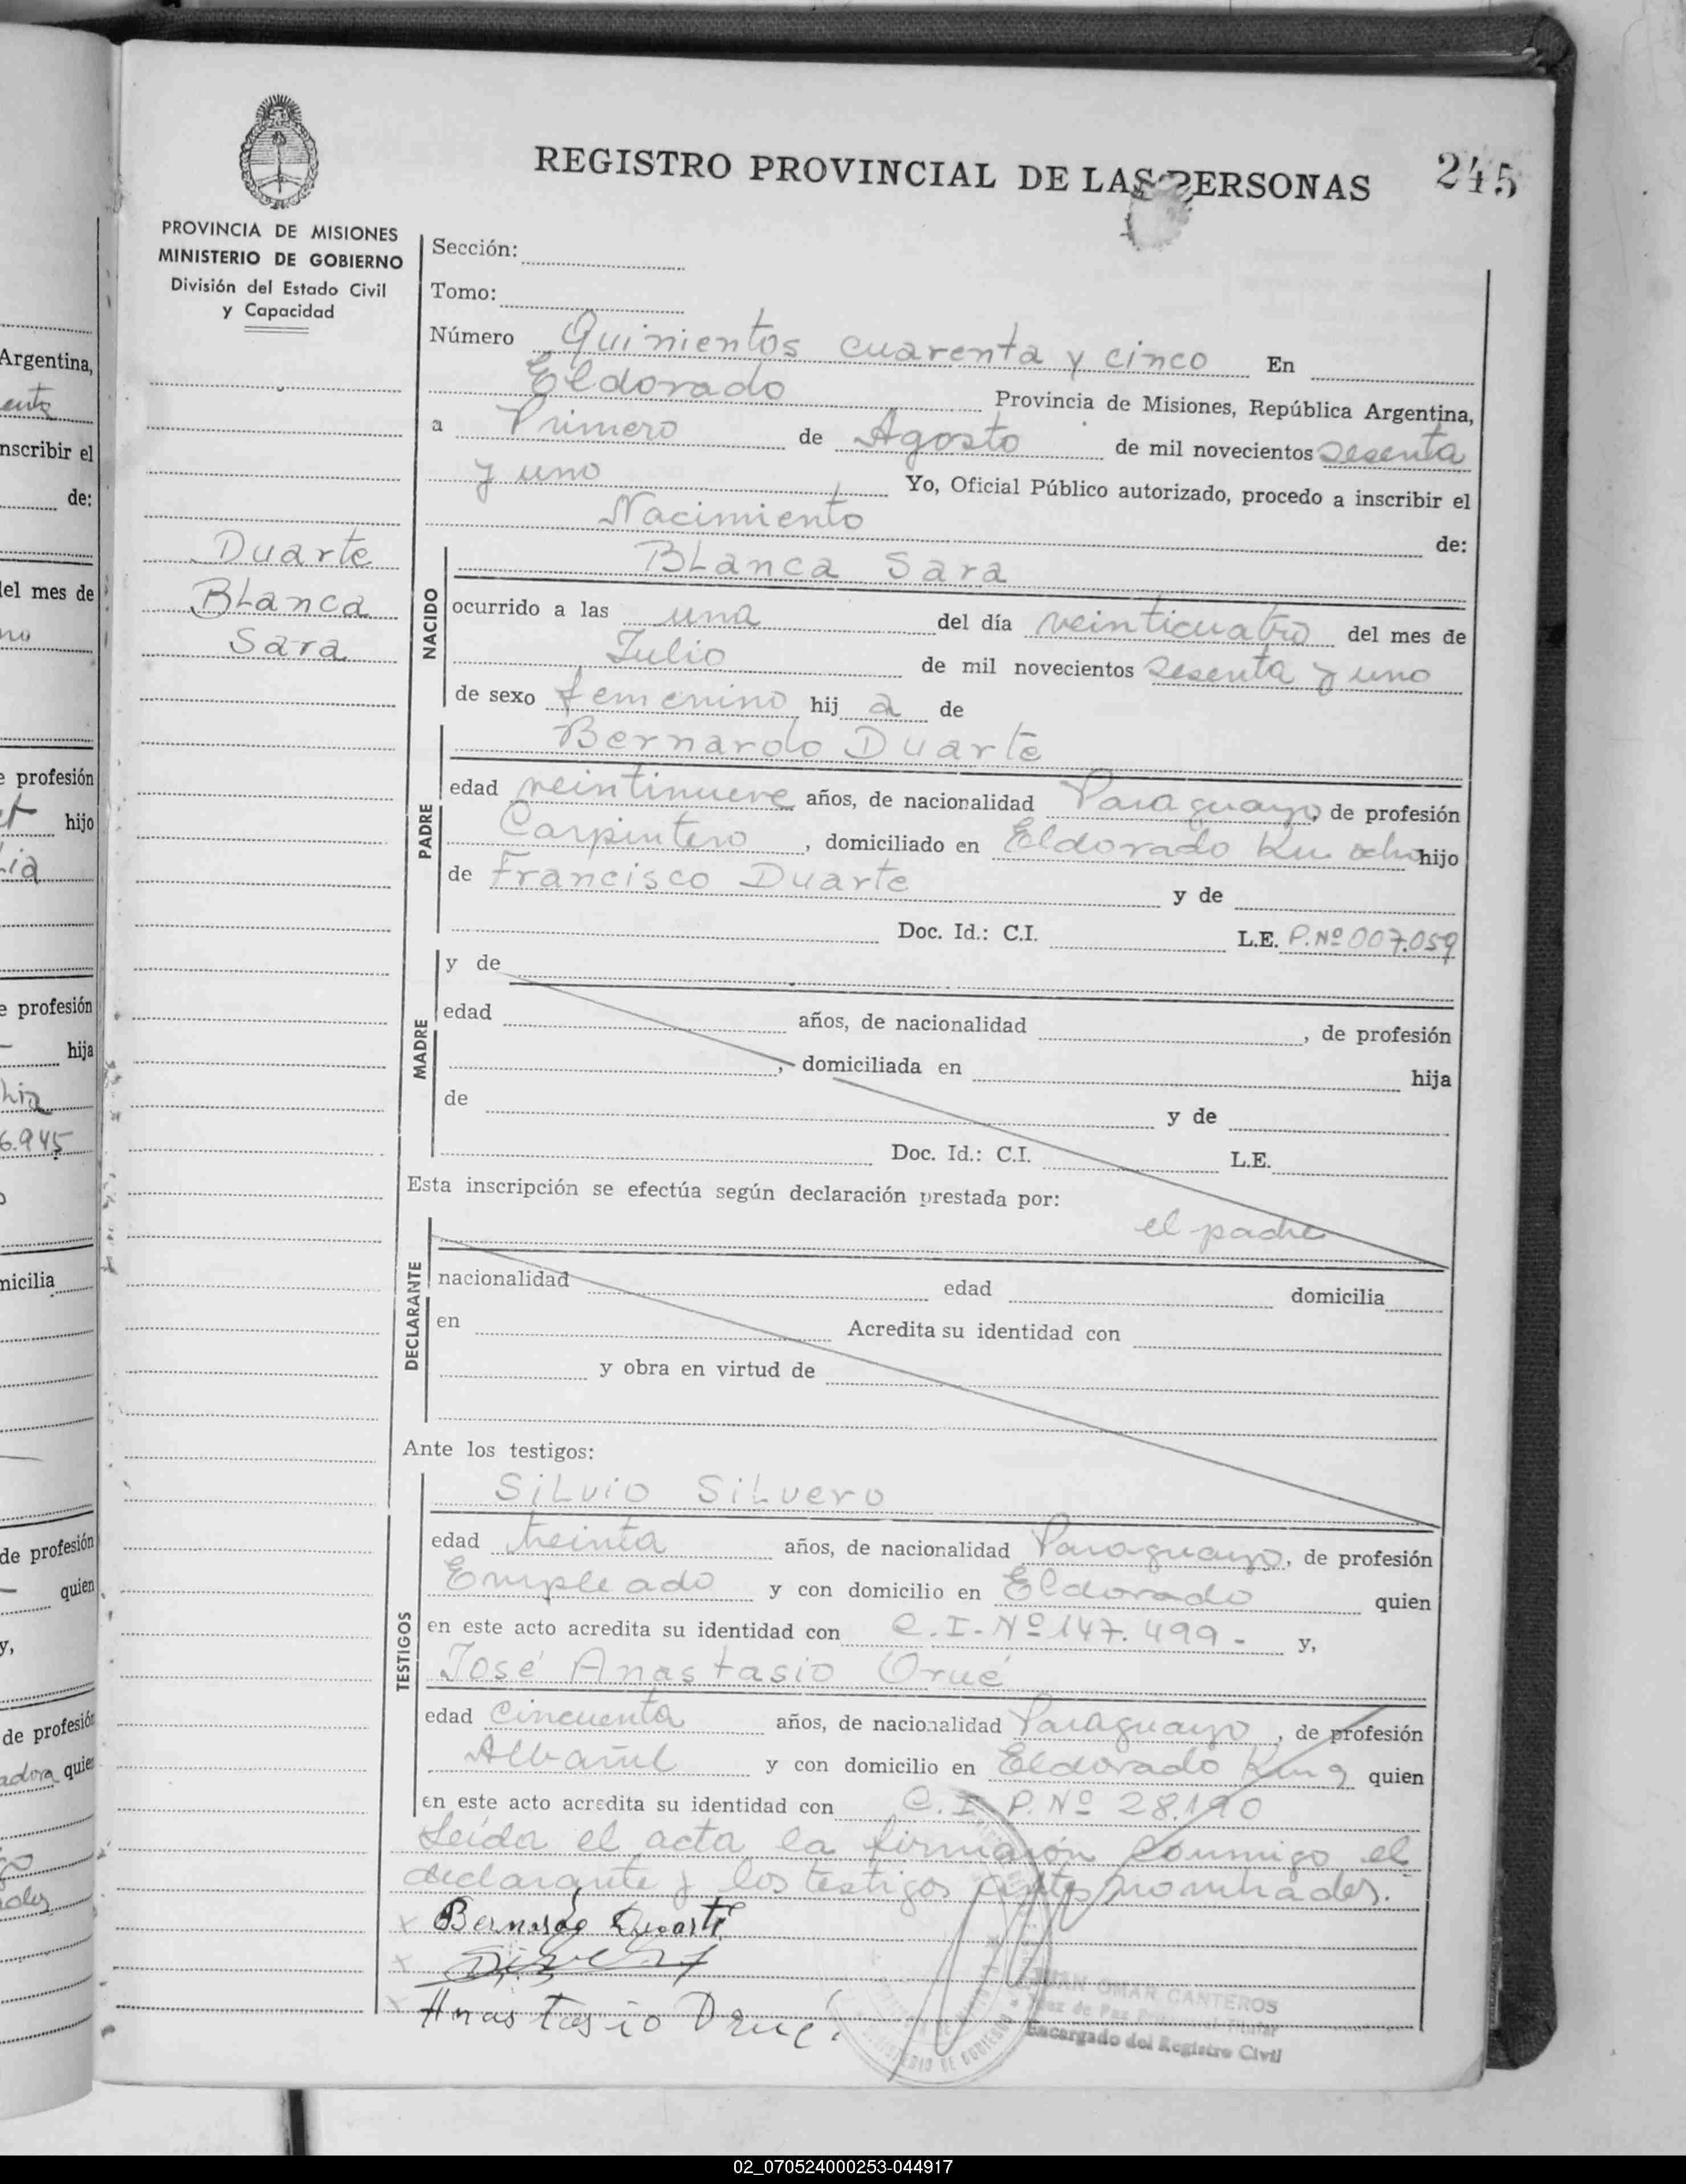 REGISTRO PROVINCIAL DE LAS PERSONAS
245
PROVINCIA DE MISIONES
MINISTERIO DE GOBIERNO
División del Estado Civil
y Capacidad
Duarte
BLanca
Sara
Sección:
Tomo:
Número Quinientos cuarenta y cinco En
Eldorado Provincia de Misiones, República Argentina,
a Primero de Agosto de mil novecientos sesenta
y uno Yo, Oficial Público autorizado, procedo a inscribir el
Nacimiento de:
NACIDO
BLanca Sara
ocurrido a las una del día veinticuatro del mes de
Julio de mil novecientos sesenta y uno
de sexo femenino hij a de
PADRE
Bernardo Duarte
edad veintinueve años, de nacionalidad Paraguayo, de profesión
Carpintero, domiciliado en Eldorado Km ocho hijo
de Francisco Duarte y de
Doc. Id.: C.I. L.E. P.Nº 007.059
MADRE
y de
edad años, de nacionalidad , de profesión
, domiciliada en hija
de y de
Doc. Id.: C.I. L.E.
Esta inscripción se efectúa según declaración prestada por:
el padre
DECLARANTE
nacionalidad edad domicilia
en Acredita su identidad con
y obra en virtud de
Ante los testigos:
TESTIGOS
SiLvio SiLvero
edad treinta años, de nacionalidad Paraguayo, de profesión
Empleado y con domicilio en Eldorado quien
en este acto acredita su identidad con C.I-Nº 147.499- y,
José Anastasio Orué
edad cincuenta años, de nacionalidad Paraguayo, de profesión
Albañil y con domicilio en Eldorado Km 9 quien
en este acto acredita su identidad con C.I. P.Nº 28.190
Leída el acta la firmarón conmigo el
declarante y los testigos antes nombrados.
x Bernardo Duarte
x
x Anastasio Orué.
JUAN OMAR CANTEROS
Juez de Paz Titular
Encargado del Registro Civil
MINISTERIO DE GOBIERNO
Argentina,
nscribir el
de:
del mes de
e profesión
hijo
e profesión
hija
6.945
micilia
de profesión
quien
y,
de profesión
adora quien
02_070524000253-044917